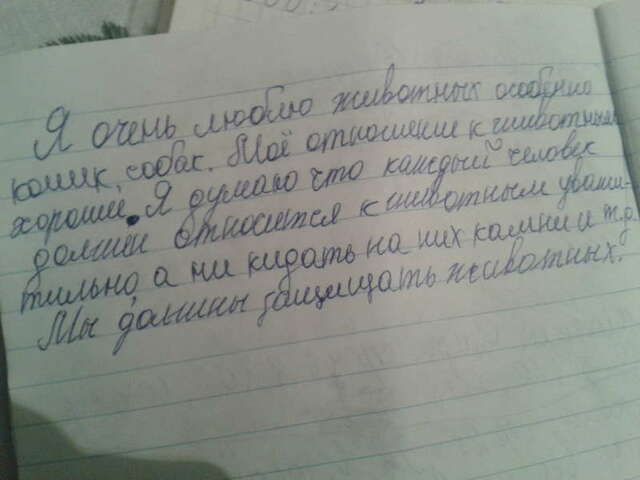 Я очень люблю животных особенно
кошек, собак. Моё отношение к животным
хорошие. Я думаю что каждый человек
должен относится к животным уважи-
тильно, а ни кидать на них камни и т.д
Мы должны защищать животных.